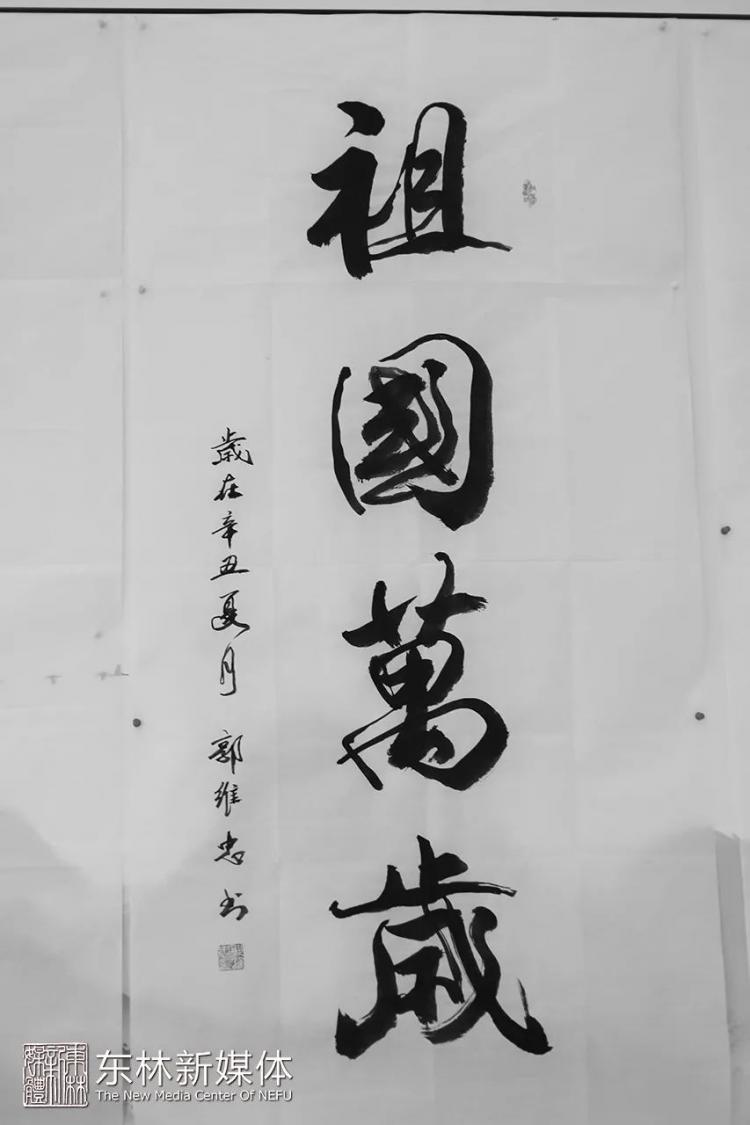 祖國萬歲
歲在辛丑夏月 郭維忠书
东林新媒体
The New Media Center Of NEFU